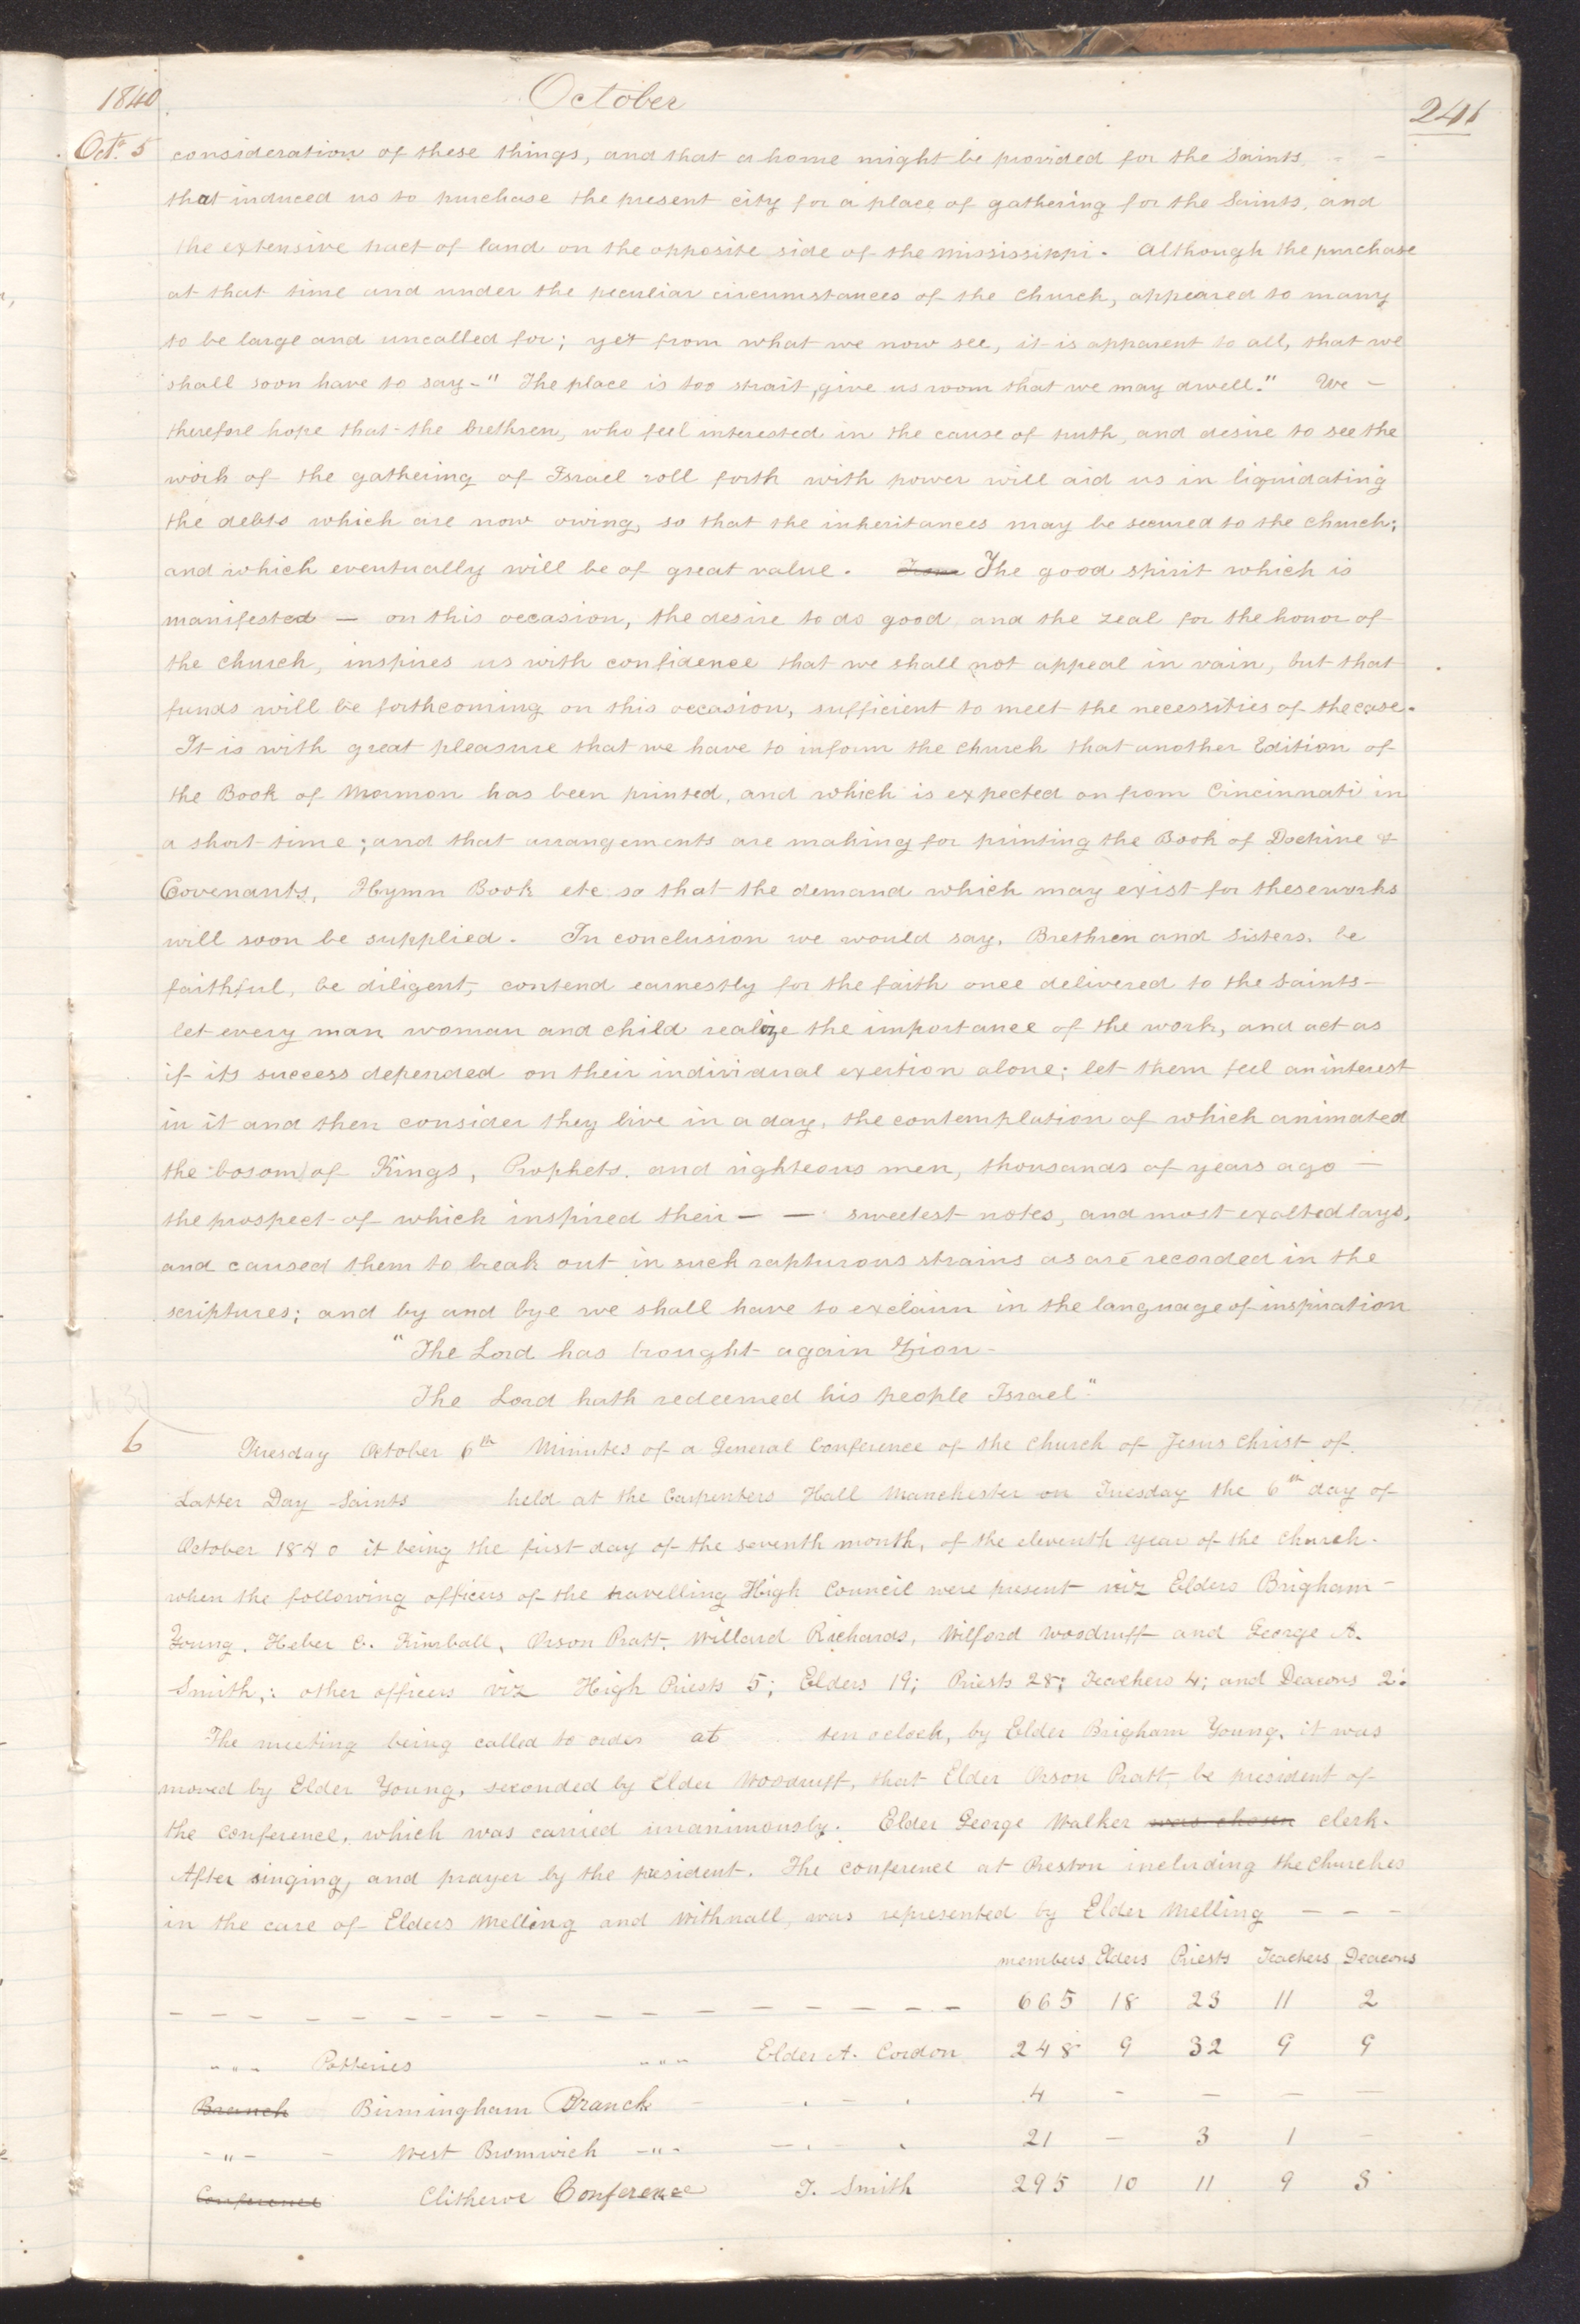 1840. October 241
Oct. 5 consideration of these things, and that a home might be provided for the Saints, - -
that induced us to purchase the present city for a place of gathering for the Saints, and
the extensive tract of land on the opposite side of the Mississippi. Although the purchase
at that time and under the peculiar circumstances of the church, appeared to many
to be large and uncalled for; yet from what we now see, it is apparent to all, that we
shall soon have to say - "The place is too strait, give us room that we may dwell." We -
therefore hope that the brethren, who feel interested in the cause of truth, and desire to see the
work of the gathering of Israel roll forth with power will aid us in liquidating
the debts which are now owing, so that the inheritances may be secured to the church;
and which eventually will be of great value. From The good spirit which is
manifested — on this occasion, the desire to do good and the zeal for the honor of
the church, inspires us with confidence that we shall not appeal in vain, but that
funds will be forthcoming on this occasion, sufficient to meet the necessities of the case.
It is with great pleasure that we have to inform the church that another Edition of
the Book of Mormon has been printed, and which is expected on from Cincinnati in
a short time; and that arrangements are making for printing the Book of Doctrine &
Covenants, Hymn Book etc so that the demand which may exist for these works
will soon be supplied. In conclusion we would say, Brethren and Sisters, be
faithful, be diligent, contend earnestly for the faith once delivered to the Saints -
let every man, woman and child realize the importance of the work, and act as
if its success depended on their individual exertion alone; let them feel an interest
in it and then consider they live in a day, the contemplation of which animated
the bosom of Kings, Prophets, and righteous men, thousands of years ago —
the prospect of which inspired their — — sweetest notes, and most exalted lays,
and caused them to break out in such rapturous strains as are recorded in the
scriptures; and by and bye we shall have to exclaim in the language of inspiration
"The Lord has brought again Zion -
The Lord hath redeemed his people Israel"
6 Tuesday October 6th Minutes of a General Conference of the Church of Jesus Christ of
Latter Day Saints held at the Carpenters Hall Manchester on Tuesday the 6th day of
October 1840 it being the first day of the seventh month, of the eleventh year of the church.
when the following officers of the travelling High Council were present viz Elders Brigham -
Young, Heber C. Kimball, Orson Pratt, Willard Richards, Wilford Woodruff and George A.
Smith,: other officers viz High Priests 5; Elders 19; Priests 28; Teachers 4; and Deacons 2.
The meeting being called to order at ten oclock, by Elder Brigham Young, it was
moved by Elder Young, seconded by Elder Woodruff, that Elder Orson Pratt, be president of
the conference, which was carried unanimously. Elder George Walker was chosen clerk.
After singing, and prayer by the president. The conference at Preston including the churches
in the care of Elders Melling and Withnall, was represented by Elder Melling - - -
members Elders Priests Teachers Deacons
- - - - - - - - - - - - - - - - 665 18 23 11 2
" " " Potteries " " " Elder A. Cordon 248 9 32 9 9
Branch Birmingham Branch - - . - . 4 - - - -
- " - - West Bromwich - " - - . - . 21 - 3 1 -
Conference Clitheroe Conference T. Smith 295 10 11 9 3